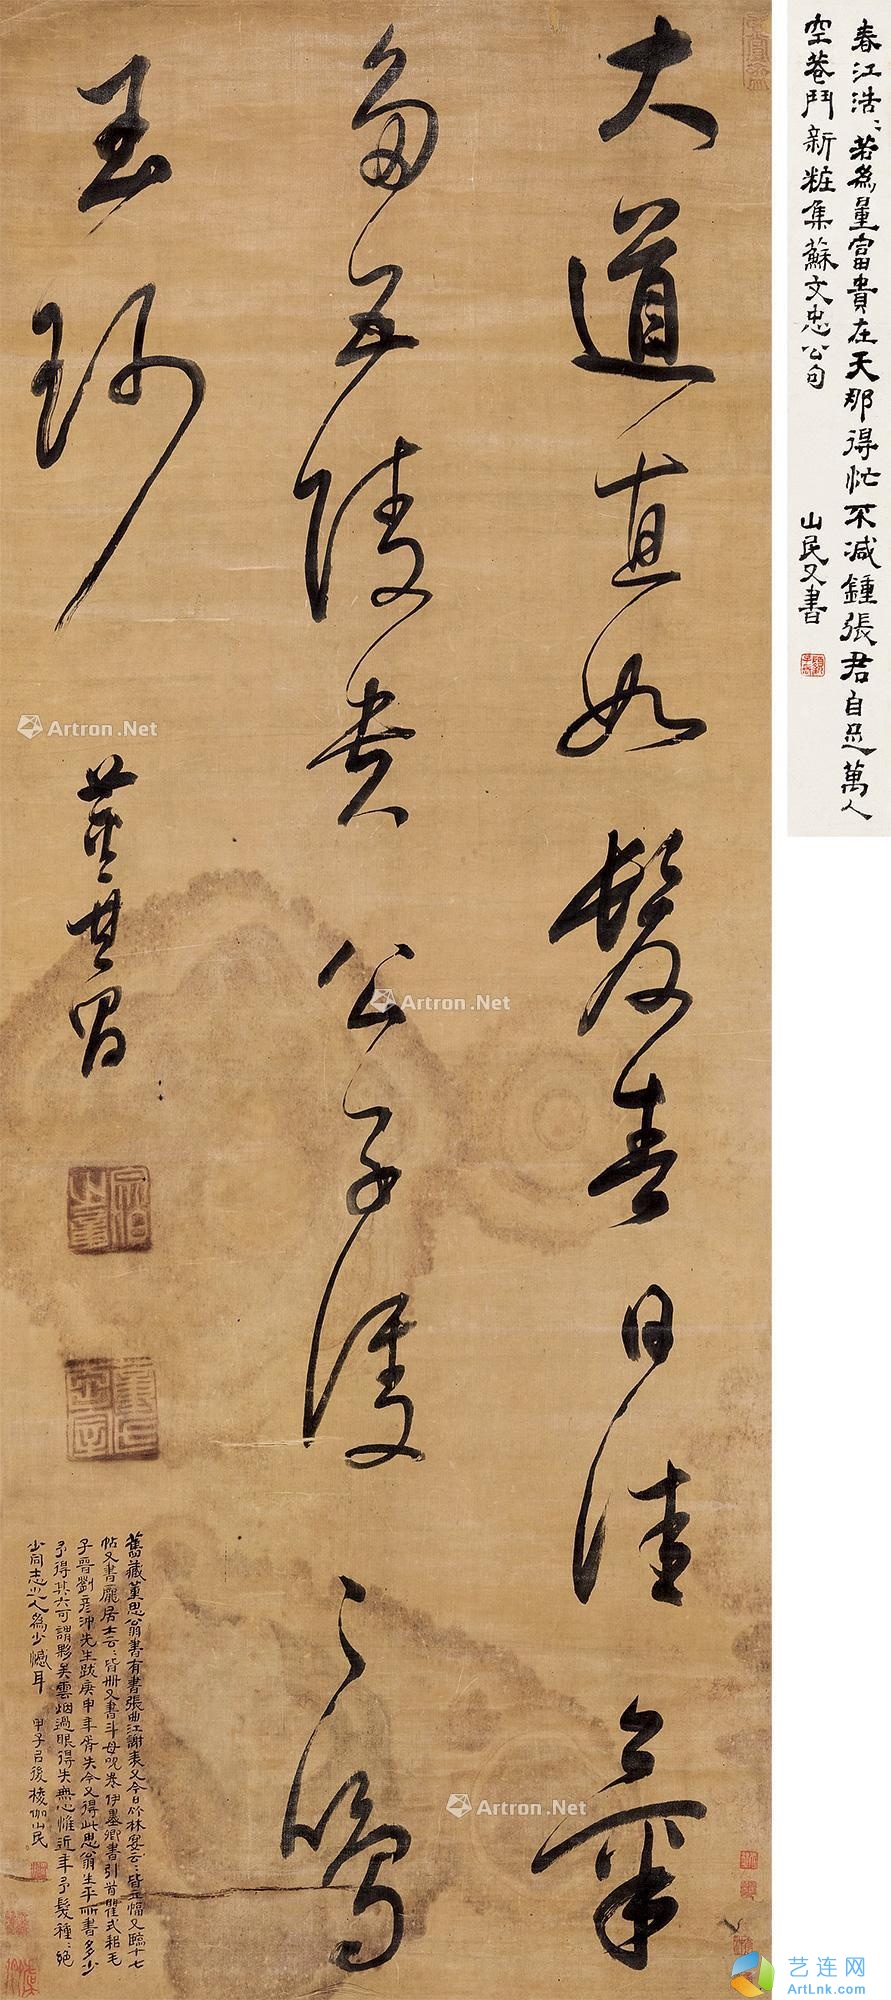 大道直如髮春日佳氣
多五陵貴公子雙雙鳴
玉珂
董其昌
舊藏董思翁書有書張曲江謝表又今日竹林宴云云皆立幅又臨十七
帖又書龐居士云云皆冊又書斗母咒卷伊墨卿書引首瞿式耜毛
子晉劉彥沖先生跋庚申年胥失今又得此思翁生平所書多少
予得其六可謂夥矣雲烟過眼得失無心惟近年予髮種種絕
少同志之人為少憾耳
甲子呂後棱伽山民
春江浩浩若為量富貴在天那得忙不減鍾張君自足萬人
空巷鬥新粧集蘇文忠公句
山民又書
Artron.Net
Artron.Net
Artron.Net
艺连网
ArtLnk.com